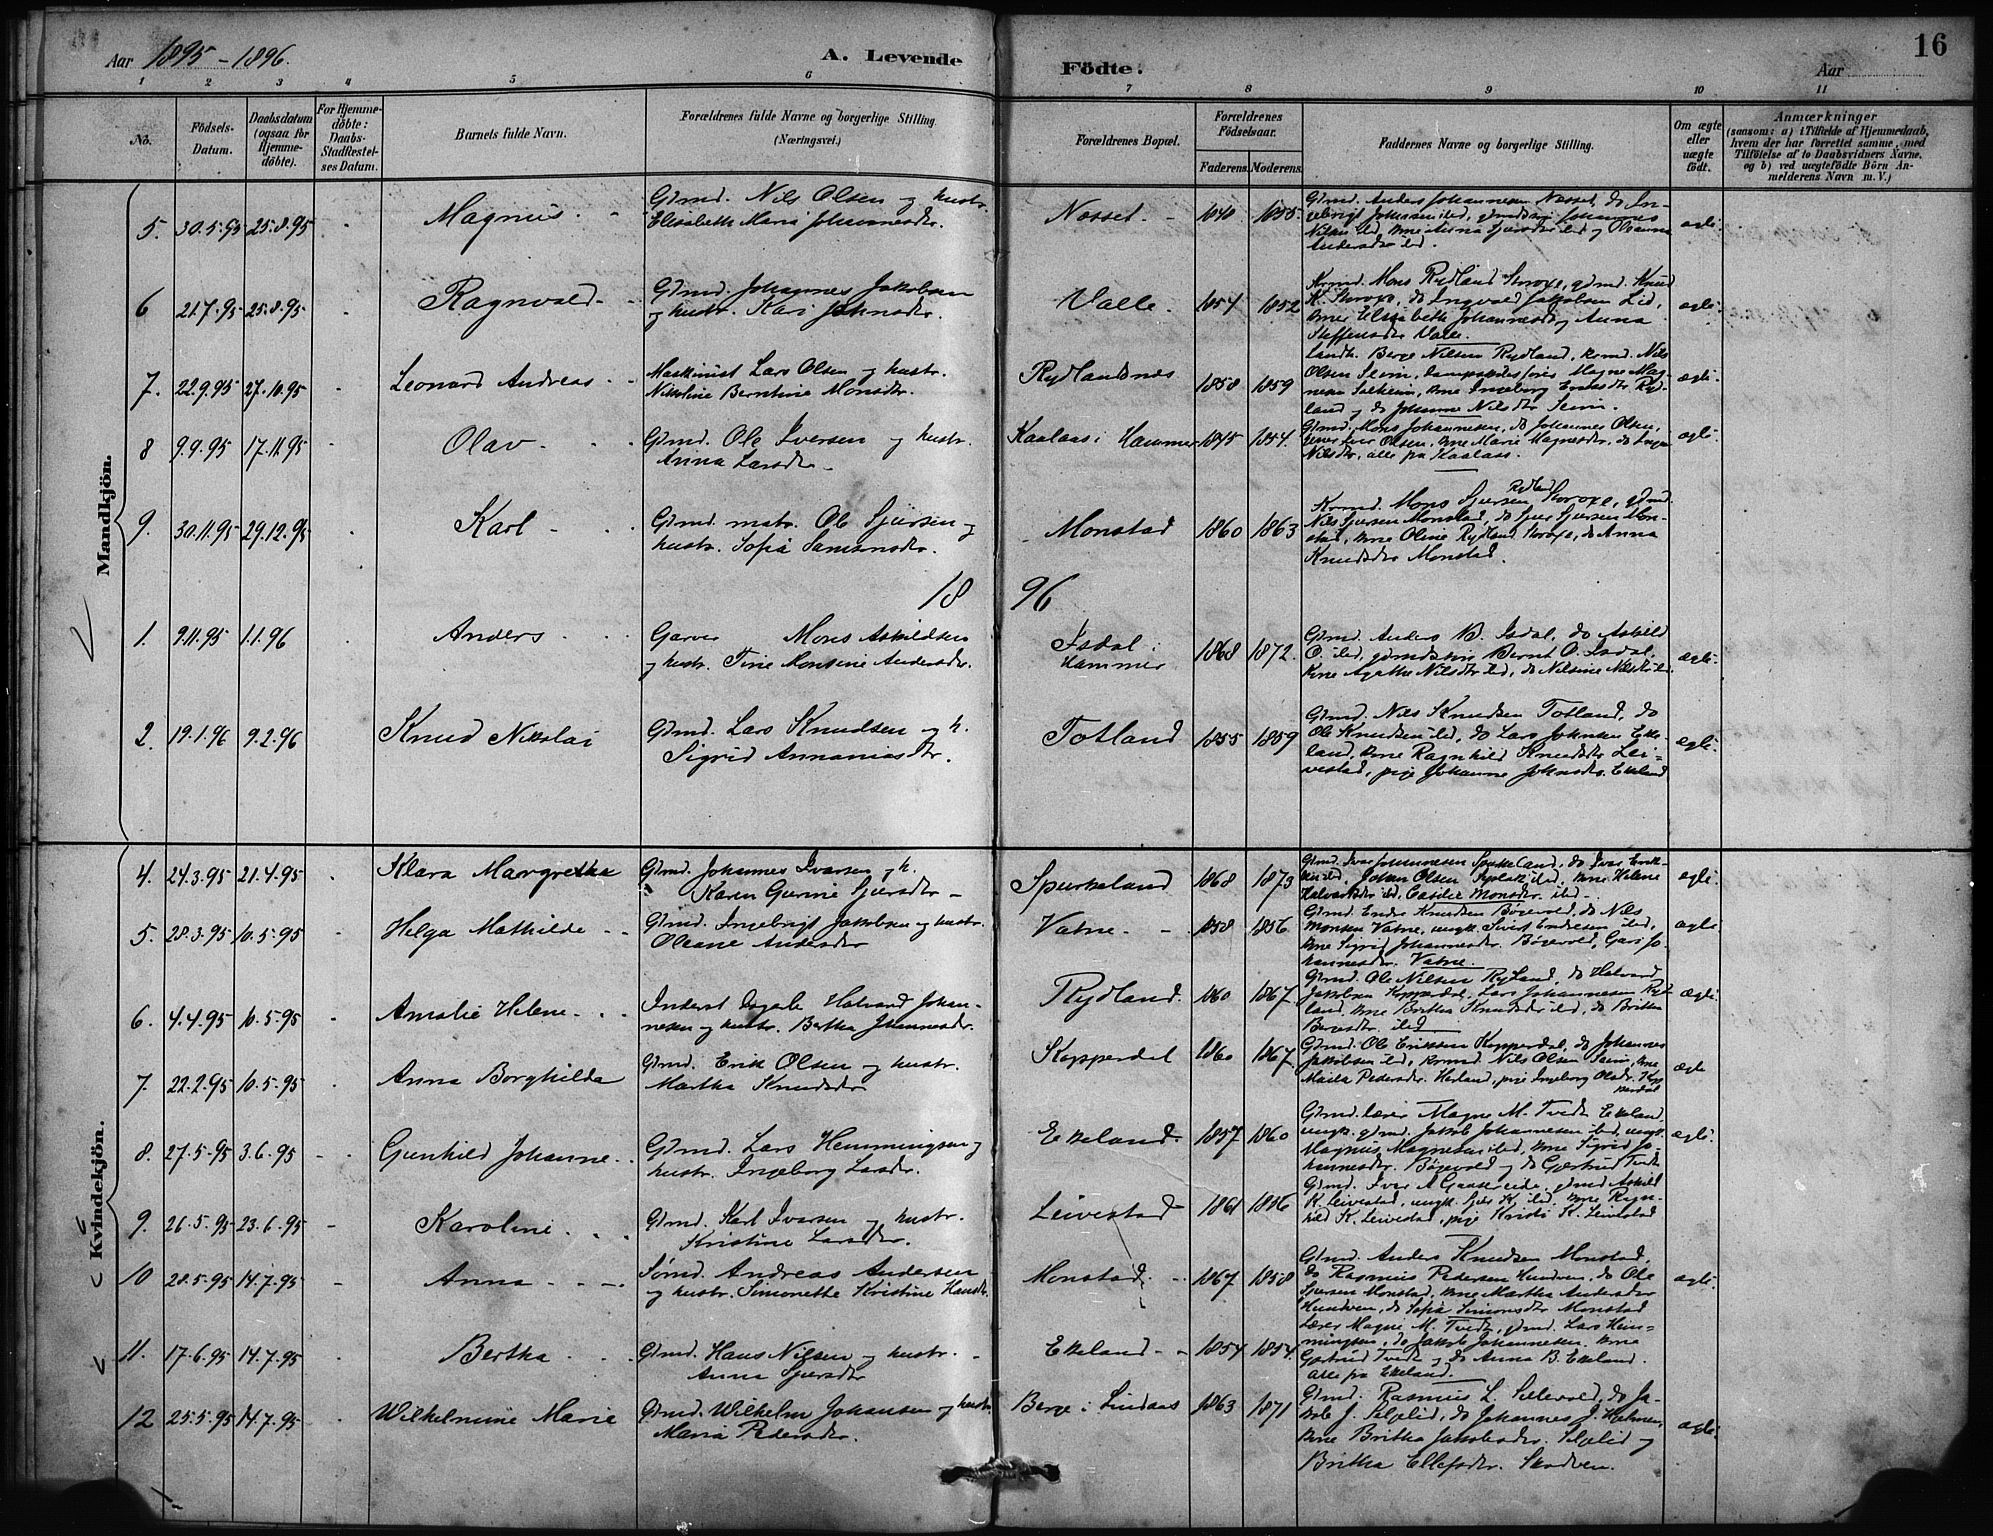 Aar 1895-1896.
A. Levende Födte.
Aar
16
1 2 3 4 5 6 7 8 9 10 11
No.
Födsels-Datum.
Daabsdatum (ogsaa for Hjemme-döbte).
For Hjemme-döbte: Daabs-Stadfæstel-ses Datum.
Barnets fulde Navn.
Forældrenes fulde Navne og borgerlige Stilling.
(Næringsvei.)
Forældrenes Bopæl.
Forældrenes Födselsaar.
Faderens. Moderens.
Faddernes Navne og borgerlige Stilling.
Om ægte eller uægte födt.
Anmærkninger
(saasom: a) i Tilfælde af Hjemmedaab,
hvem der har forrettet samme, med
Tilföielse af to Daabsvidners Navne,
og b) ved uægtefödte Börn An-
melderens Navn m. V.)
Mandkjön.
5. 30.5.95 25.8.95 Magnus Gbmd. Nils Olsen og hustr.
Elisabeth Maria Johannesdtr. Nesset 1840 1855 Gbmd. Anders Johannesen Nesset, do In-
gebrigt Johannesen ibd, gbmdsøn Johannes
Nilsen ibd, kone Anna Sjursdtr ibd og Oleanna
Andersdtr ibd. ægte
6 21.7.95 25.8.95 Ragnvald Gbmd. Johannes Jakobsen
og hustr. Kari Johnsdtr. Valle 1854 1852 Kormd. Mons Rydland Skroxe, gbmd. Knud
K. Skroxe, do Ingvald Jakobsen Lid,
kone Elisabeth Johannesd og Anna
Steffensdtr Valle. ægte
7. 22.9.95 27.10.95 Leonard Andreas Maskinist Lars Olsen og hustr.
Nikoline Berntine Monsdtr. Rydlandsnes 1858 1859 Landh. Berge Nilsen Rydland, kormd. Nils
Olsen Seim, dampskibsfører Magne Mag-
nesen Selheim, kone Ingeborg Eriksdtr Ryd-
land og do Johanne Nilsdtr Seim. ægte
8 9.9.95 17.11.95 Olav Gbmd. Ole Iversen og hustr.
Anna Larsdtr Kaalaas i Hammer 1845 1854 Gbmd. Mons Johannesen, do Johannes Olsen,
Iver Olsen, kone Marie Magnesdtr, do
Nilsdtr, alle fra Kaalaas. ægte
9. 30.11.95 29.12.95 Karl Gbmd. matr. Ole Sjursen og
hustr. Sofia Samsonsdtr. Monstad 1860 1863 Kormd. Mons Sjursen Rydland Skroxe, gbmd.
Nils Sjursen Monstad, do Sjur Sjursen Mon-
stad, kone Oline Rydland Skroxe, do Anna
Knudsdtr Monstad.
1896
1. 9.11.95 1.1.96 Anders Garver Mons Askildsen
og hustr. Tine Monsine Andersdtr. Isdal i
Hammer 1868 1872. Gbmd. Anders B. Isdal, do Askild
O. ibd, gbmdsøn Bernt O. Isdal,
kone Agathe Nilsdtr ibd, do Nilsine Nilsdtr ibd. ægte
2. 19.1.96 9.2.96 Knud Nikolai Gbmd. Lars Knudsen og h.
Sigrid Annaniasdtr. Totland 1855 1859 Gbmd. Nils Knudsen Totland, do
Ole Knudsen ibd, do Lars Johnsen Eke-
land, kone Ragnhild Knudsdtr Lei-
vestad, pige Johanne Johnsdtr. Ekeland ægte
Kvindekjön.
4. 24.3.95 21.4.95 Klara Margretha Gbmd. Johannes Ivarsen og h.
Karen Gurine Sjursdtr Spurkeland 1868 1873 Gbmd. Ivar Johannesen Spurkeland, do Ivar Erik-
sen ibd, Johan Olsen ibd, kone Helene
Halvorsdtr ibd, Monsdtr ibd ægte
5. 28.3.95 10.5.95 Helga Mathilde Gbmd. Ingebrigt Jakobsen og hustr.
Oleane Andersdtr Vatne 1858 1856 Gbmd. Endre Knudsen Bøgevold, do Nils
Monsen Vatne, ungk. Sivert Endresen ibd,
kone Sigrid Johannesdtr. Bøgevold, Guri Jo-
hannesdtr. Vatne. ægte
6. 4.4.95 10.5.95 Amalie Helene Inderst Halvard Johan-
nesen og hustr. Bertha Johannesdtr. Rydland. 1860 1867. Gbmd. Ole Nilsen Rydland, do Halvard
Jakobsen Kopperdal, Lars Johannesen Ryd-
land, kone Brithe Knudsdtr ibd, do Britha
Bergesdtr. ibd ægte
7. 22.2.95 10.5.95 Anna Borghilda Gbmd. Erik Olsen og hustr.
Martha Knudsdtr Kopperdal 1860 1867. Gbmd. Ole Eriksen Kopperdal, do Johannes
Jakobsen ibd, kormd. Nils Olsen Seim, kone
Pedersdtr. Herland, pige Ingeborg Olsdtr. Kop-
perdal ægte
8. 27.5.95 3.6.95 Gunhild Johanne Gbmd. Lars Hemmingsen og
hustr. Ingeborg Larsdtr. Ekeland 1857 1860 Gbmd. lærer Magne M. Tvedt Ekeland,
ungk. gbmd. Jakob Johannesen ibd, ungk.
Magnus Magnesen ibd, kone Sigrid Jo-
hannesdtr. Bøgevold og do Gjertrud Tvedt. ægte
9. 26.5.95 23.6.95 Karoline Gbmd. Karl Ivarsen og hustr.
Kristine Larsdtr. Leivestad 1861 1856 Gbmd. Iver A. , gbmd. Askild
K. Leivestad, ungk. Sjur K. ibd, kone Ragn-
hild K. Leivestad, pige Kristi K. Leivestad
10 28.5.95 14.7.95 Anna Sømd. Andreas Andersen
og hustr. Simonette Kristine Hansdtr. Monstad 1867 1858 Gbmd. Anders Knudsen Monstad,
do Rasmus Pedersen Hundven, do Ole
Sjursen Monstad, kone Martha Andersdtr
Hundven, do Sofia Simonsdtr Monstad ægte
11. 17.6.95 14.7.95 Bertha Gbmd. Hans Nilsen og hustr.
Anna Sjursdtr Ekeland 1854 1854. Lærer Magne M. Tvedt, gbmd. Lars Hem-
mingsen, do Jakob Johannesen, kone
Gjertrud Tvedt og do Anna B. Ekeland.
alle fra Ekeland.
12 25.5.95 14.7.95 Wilhelmine Marie Gbmd. Wilhelm Johansen og hustr.
Maria Pedersdtr. Berge i Lindaas 1863 1871 Gbmd. Rasmus L. Sellevold, do Ja-
kob J. Seljelid, do Johannes J. Hjelmen,
kone Britha Jakobsdtr. Seljelid og
Britha Ellefsdtr. Skodven. ægte